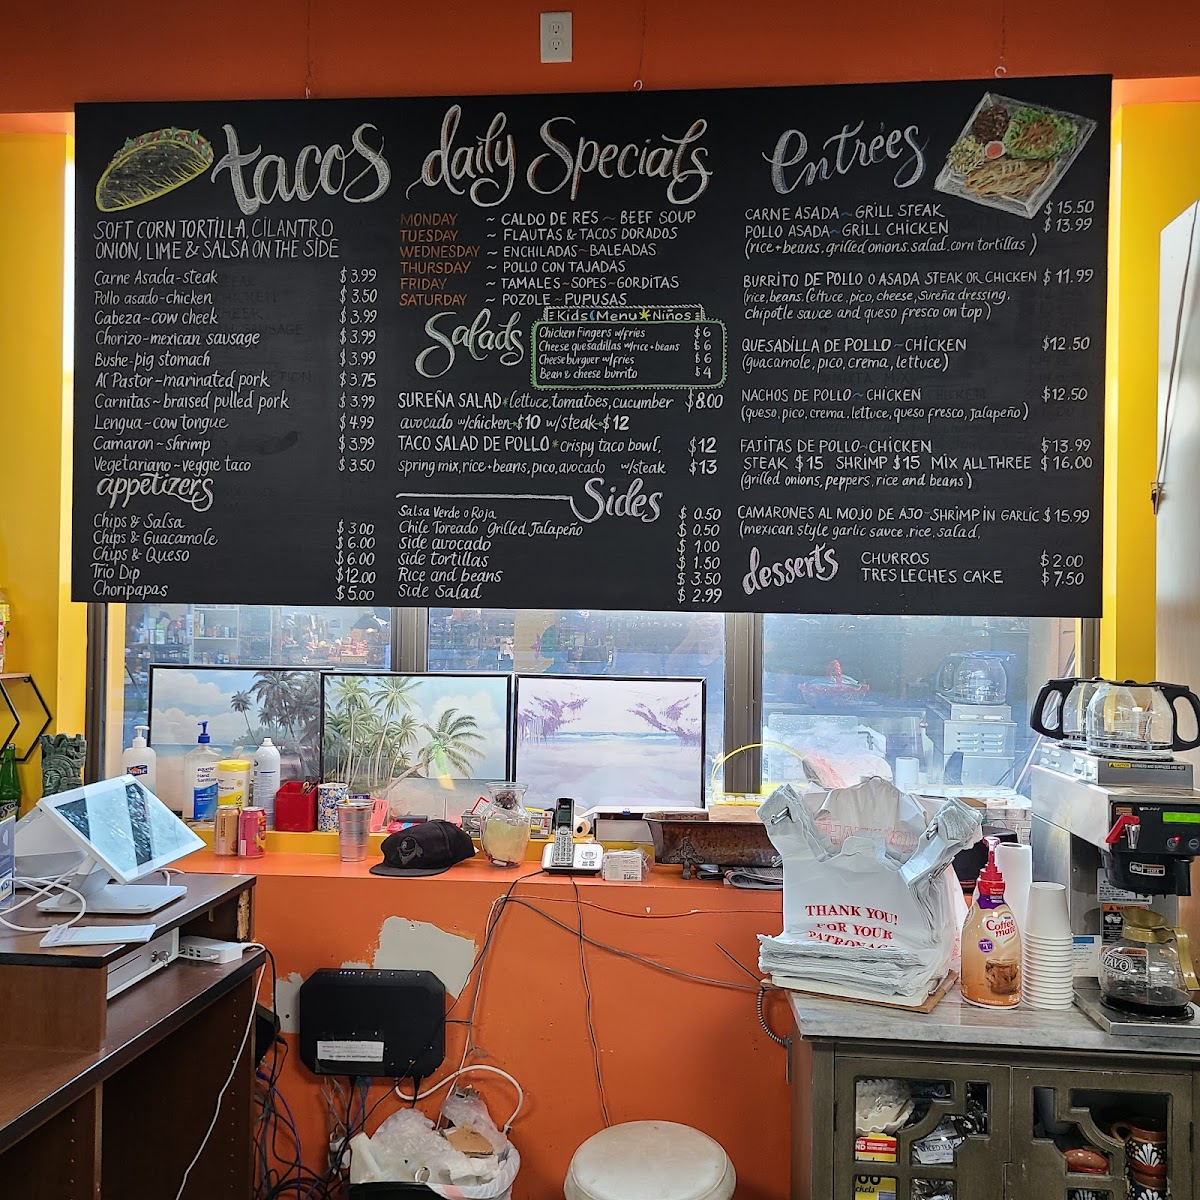 tacos
SOFT CORN TORTILLA, CILANTRO
ONION, LIME & SALSA ON THE SIDE
Carne Asada-steak $3.99
Pollo asado-chicken $3.50
Cabeza~cow cheek $3.99
Chorizo-mexican sausage $3.99
Bushe-pig stomach $3.99
Al Pastor-marinated pork $3.75
Carnitas~braised pulled pork $3.99
Lengua~cow tongue $4.99
Camaron~shrimp $3.99
Vegetariano~veggie taco $3.50
appetizers
Chips & Salsa $3.00
Chips & Guacamole $6.00
Chips & Queso $6.00
Trio Dip $12.00
Choripapas $5.00
daily Specials
MONDAY ~ CALDO DE RES ~ BEEF SOUP
TUESDAY ~ FLAUTAS & TACOS DORADOS
WEDNESDAY ~ ENCHILADAS~BALEADAS
THURSDAY ~ POLLO CON TAJADAS
FRIDAY ~ TAMALES~SOPES~GORDITAS
SATURDAY ~ POZOLE~PUPUSAS
Salads
Kids Menu Niños
Chicken Fingers w/fries $6
Cheese quesadillas w/rice+beans $6
Cheeseburguer w/fries $6
Bean & cheese burrito $4
SUREÑA SALAD*lettuce,tomatoes,cucumber $8.00
avocado w/chicken~$10 w/steak~$12
TACO SALAD DE POLLO*crispy taco bowl, $12
spring mix,rice+beans,pico,avocado w/steak $13
Sides
Salsa Verde o Roja $0.50
Chile Toreado Grilled Jalapeño $0.50
Side avocado $1.00
Side tortillas $1.50
Rice and beans $3.50
Side Salad $2.99
Entrées
CARNE ASADA~GRILL STEAK $15.50
POLLO ASADA~GRILL CHICKEN $13.99
(rice+beans,grilled onions,salad,corn tortillas)
BURRITO DE POLLO O ASADA STEAK OR CHICKEN $11.99
(rice,beans,lettuce,pico,cheese,Sureña dressing,
chipotle sauce and queso fresco on top)
QUESADILLA DE POLLO~CHICKEN $12.50
(guacamole,pico,crema,lettuce)
NACHOS DE POLLO~CHICKEN $12.50
(queso,pico,crema,lettuce,queso fresco,Jalapeño)
FAJITAS DE POLLO~CHICKEN $13.99
STEAK $15 SHRIMP $15 MIX ALL THREE $16.00
(grilled onions,peppers,rice and beans)
CAMARONES AL MOJO DE AJO-SHRIMP IN GARLIC $15.99
(mexican style garlic sauce,rice,salad,
desserts
CHURROS $2.00
TRES LECHES CAKE $7.50
THANK YOU!
FOR YOUR
PATRONAGE
Coffee
mate